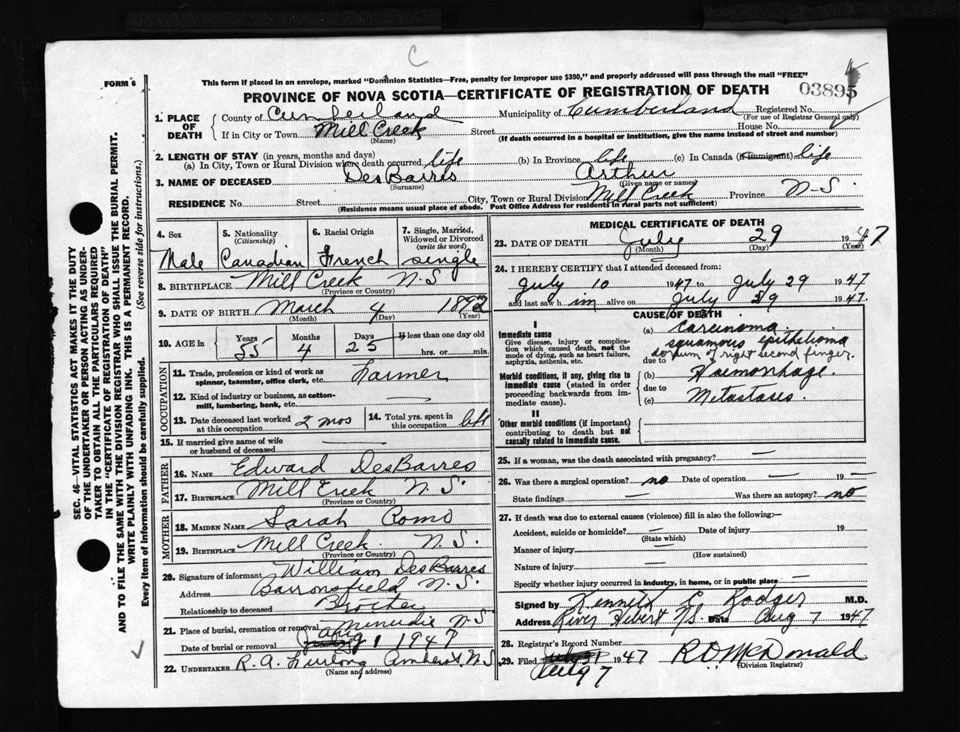 C
FORM 6
This form if placed in an envelope, marked "Dominion Statistics—Free, penalty for improper use $300," and properly addressed will pass through the mail "FREE"
PROVINCE OF NOVA SCOTIA—CERTIFICATE OF REGISTRATION OF DEATH
03895
1. PLACE OF DEATH
County of Cumberland Municipality of Cumberland Registered No.
(For use of Registrar General only)
If in City or Town Mill Creek Street House No.
(Name) (If death occurred in a hospital or institution, give the name instead of street and number)
2. LENGTH OF STAY (in years, months and days)
(a) In City, Town or Rural Division where death occurred life (b) In Province life (c) In Canada (if immigrant) life
3. NAME OF DECEASED DesBarres Arthur
(Surname) (Given name or names)
RESIDENCE No. Street City, Town or Rural Division Mill Creek Province N-S.
(Residence means usual place of abode. Post Office Address for residents in rural parts not sufficient)
4. Sex 5. Nationality (Citizenship) 6. Racial Origin 7. Single, Married, Widowed or Divorced (write the word)
Male Canadian French single
8. BIRTHPLACE Mill Creek N-S
(Province or Country)
9. DATE OF BIRTH March 4 1892
(Month) (Day) (Year)
10. AGE in Years Months Days If less than one day old
55 4 25 hrs. or min.
OCCUPATION
11. Trade, profession or kind of work as spinner, teamster, office clerk, etc. Farmer
12. Kind of industry or business, as cotton-mill, lumbering, bank, etc.
13. Date deceased last worked at this occupation 2 mos 14. Total yrs. spent in this occupation life
15. If married give name of wife or husband of deceased
FATHER
16. NAME Edward DesBarres
17. BIRTHPLACE Mill Creek N.S.
(Province or Country)
MOTHER
18. MAIDEN NAME Sarah Como
19. BIRTHPLACE Mill Creek N.S.
(Province or Country)
20. Signature of informant William DesBarres
Address Barronsfield N.S.
Relationship to deceased Brother
21. Place of burial, cremation or removal Minudie N S
Date of burial or removal 1947
22. UNDERTAKER R.A. Furlong Amherst N S
(Name and address)
MEDICAL CERTIFICATE OF DEATH
23. DATE OF DEATH July 29 1947
(Month) (Day) (Year)
24. I HEREBY CERTIFY that I attended deceased from:
July 10 1947 to July 29 1947
and last saw him alive on July 29 1947.
CAUSE OF DEATH
I
Immediate cause
Give disease, injury or complication which caused death, not the mode of dying, such as heart failure, asphyxia, asthenia, etc.
(a) Carcinoma
squamous epithelioma
due to dorsum of right second finger.
Morbid conditions, if any, giving rise to immediate cause (stated in order proceeding backwards from immediate cause).
(b) Haemorrhage.
due to
(c) Metastases.
II
Other morbid conditions (if important) contributing to death but not causally related to immediate cause.
25. If a woman, was the death associated with pregnancy? —
26. Was there a surgical operation? no Date of operation — 19 —
State findings — Was there an autopsy? no
27. If death was due to external causes (violence) fill in also the following:—
Accident, suicide or homicide? — Date of injury 19
(State which)
Manner of injury —
(How sustained)
Nature of injury —
Specify whether injury occurred in industry, in home, or in public place —
Signed by Kenneth E Rodger M.D.
Address River Hebert N.S. Date Aug 7 1947
28. Registrar's Record Number
29. Filed July 31 1947 R D McDonald
Aug 7 (Division Registrar)
SEC. 46—VITAL STATISTICS ACT MAKES IT THE DUTY
OF THE UNDERTAKER OR PERSON ACTING AS UNDERTAKER
TO OBTAIN ALL THE PARTICULARS REQUIRED
IN THE "CERTIFICATE OF REGISTRATION OF DEATH"
AND TO FILE THE SAME WITH THE DIVISION REGISTRAR WHO SHALL ISSUE THE BURIAL PERMIT.
WRITE PLAINLY WITH UNFADING INK. THIS IS A PERMANENT RECORD.
Every item of information should be carefully supplied. (See reverse side for instructions.)